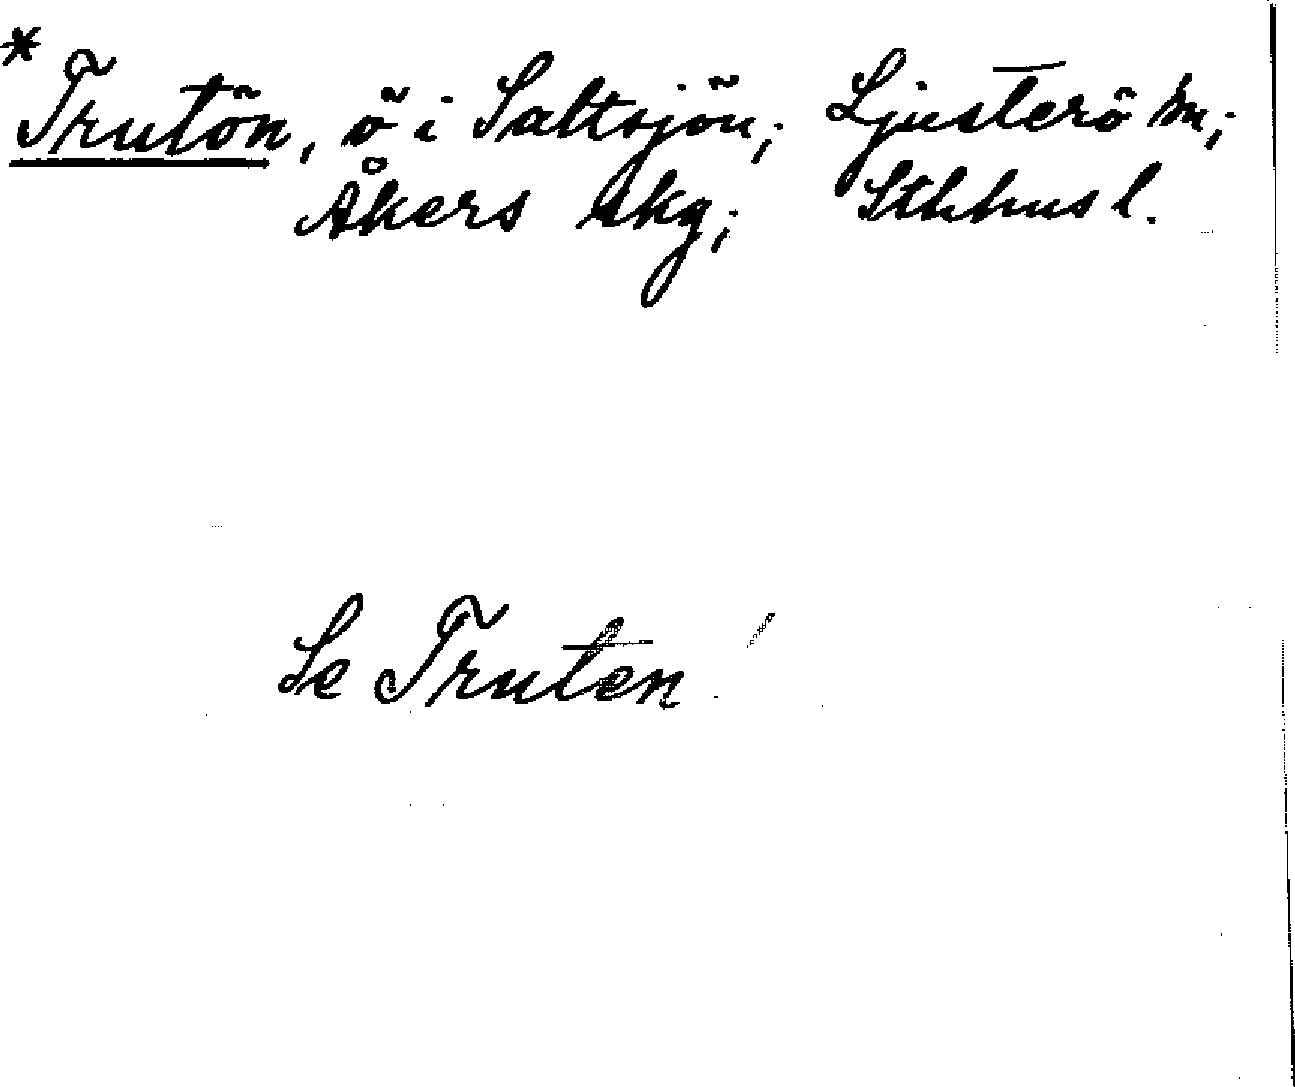 *Trutön, ö i Saltsjön; Ljusterö sn;
Åkers skg; Sthhus l.
Se Truten